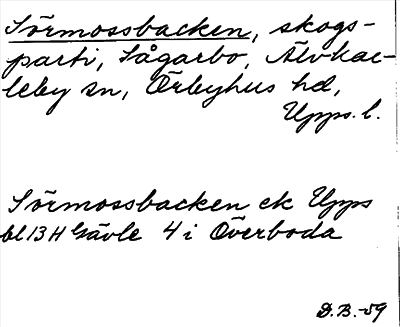 Sörmossbacken, skogs-
parti, Sågarbo, Älvkar-
leby sn, Örbyhus hd,
Upps. l.
Sörmossbacken ek Upps
bl 13 H Gävle 4 i Överboda
D.B.-59